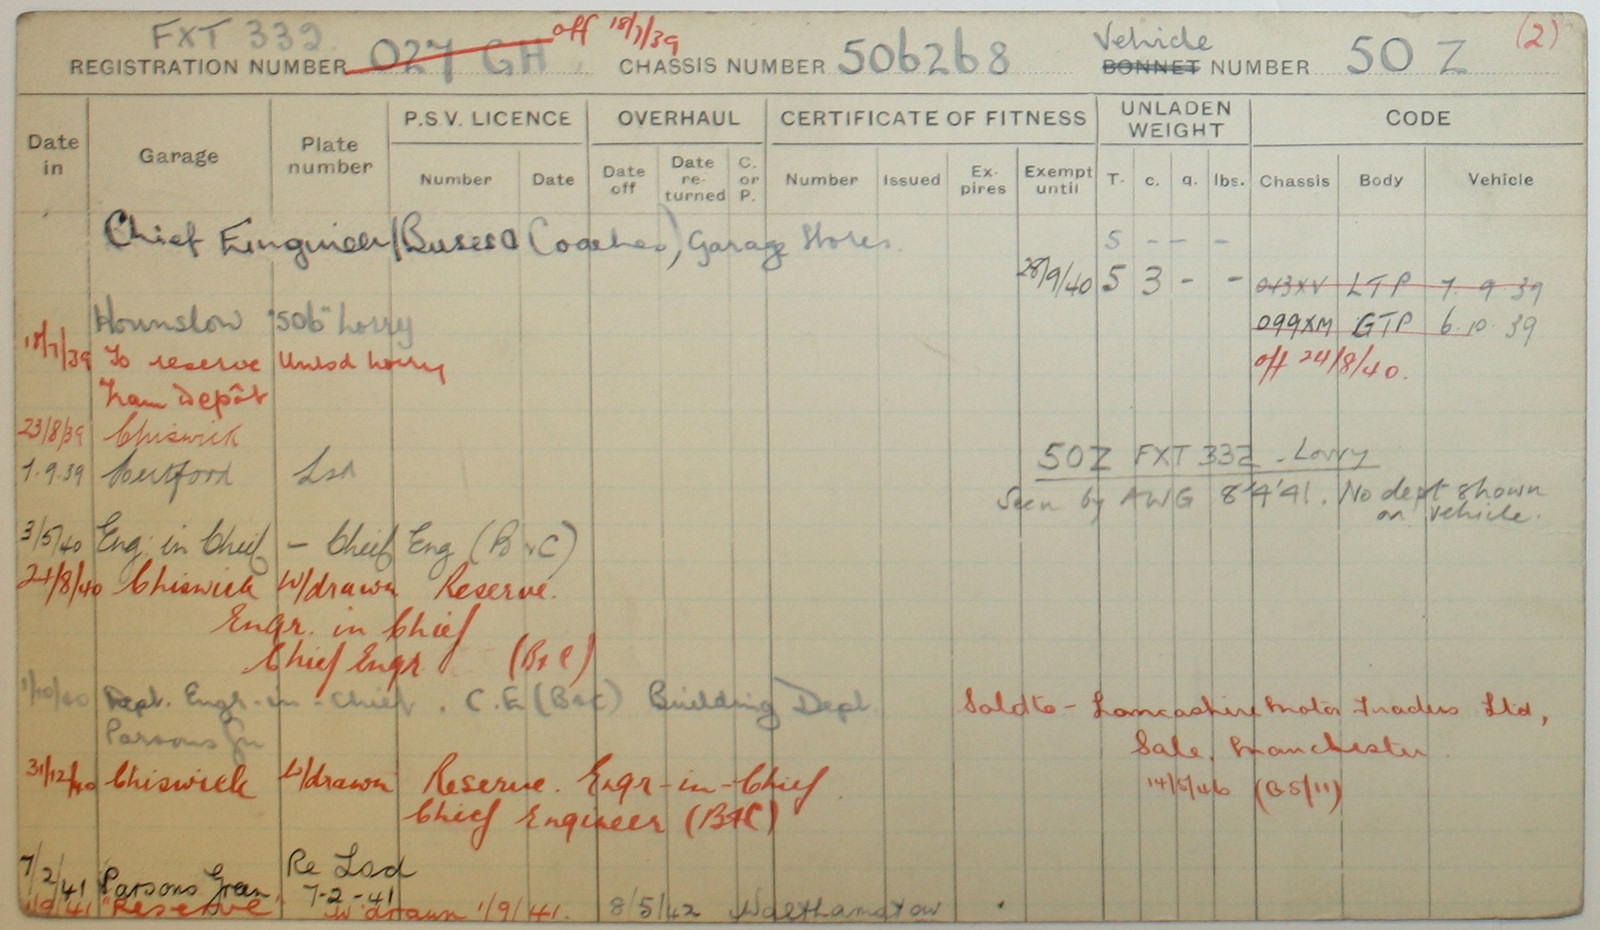 FXT 332 off 18/7/39 Vehicle (2)
REGISTRATION NUMBER 027 GH CHASSIS NUMBER 506268 BONNET NUMBER 50 Z
Date in Garage Plate number P.S.V. LICENCE OVERHAUL CERTIFICATE OF FITNESS UNLADEN WEIGHT CODE
Number Date Date off Date re-turned C. or P. Number Issued Ex-pires Exempt until T. c. q. lbs. Chassis Body Vehicle
Chief Engineer (Buses & Coaches) Garage Stores. 5 - - -
28/9/40 5 3 - - 043XV LTP 7. 9 39
Hounslow "506" Lorry 099XM GTP 6. 10. 39
18/7/39 To reserve Unlsd Lorry off 24/8/40.
Ham Depôt
23/8/39 Chiswick
50Z FXT 332 - Lorry
7.9.39 Hertford Lsd
Seen by AWG 8'4'41. No dept shown
on vehicle.
3/5/40 Eng. in Chief - Chief Eng (B & C)
24/8/40 Chiswick W/drawn Reserve.
Engr. in Chief
Chief Engr (B & C)
1/10/40 Dept. Engr-in-Chief. C.E. (B&C) Building Dept. Sold to - Lancashire Motor Traders Ltd,
Parsons Gn Sale, Manchester
31/12/40 Chiswick W/drawn Reserve. Engr-in-Chief 14/5/46 (GS/11)
Chief Engineer (B&C)
7/2/41 Parsons Green Re Lsd
7-2-41
1/9/41 "Reserve" W'drawn 1/9/41. 8/5/42 Walthamstow